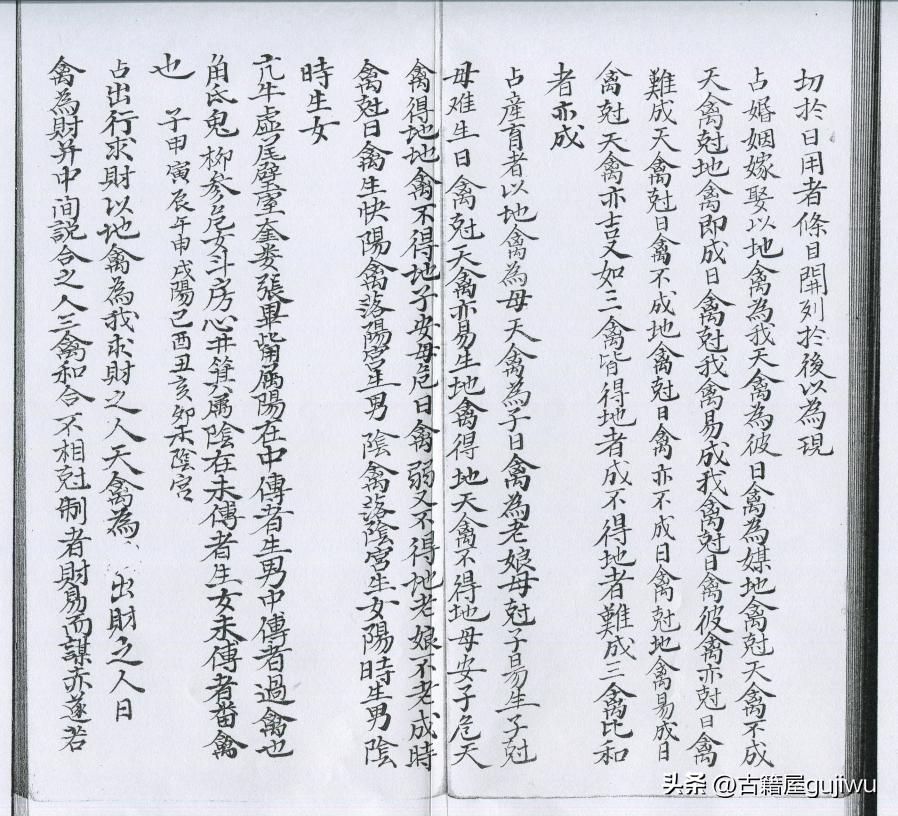 切於日用者條目開列於後以為現
占婚姻嫁娶以地禽為我天禽為彼日禽為媒地禽尅天禽不成
天禽尅地禽即成日禽尅我禽易成我禽尅日禽彼禽亦尅日禽
難成天禽尅日禽不成地禽尅日禽亦不成日禽尅地禽易成日
禽尅天禽亦吉又如三禽皆得地者成不得地者難成三禽比和
者亦成
占産育者以地禽為母天禽為子日禽為老娘母尅子易生子尅
母难生日禽尅天禽亦易生地禽得地天禽不得地母安子危天
禽得地地禽不得地子安母危日禽弱又不得地老娘不老成時
禽尅日禽生快陽禽落陽宮生男陰禽落陰宮生女陽時生男陰
時生女
亢牛虚尾壁室奎娄張畢觜屬陽在中傳者生男中傳者過禽也
角氐鬼柳參危女斗房心井箕屬陰在未傳者生女未傳者番禽
也 子甲寅辰午申戌陽己酉丑亥卯未陰宮
占出行求財以地禽為我求財之人天禽為、出財之人日
禽為財并中间説合之人三禽和合不相尅制者財易而謀亦遂若
头条 @古籍屋gujiwu